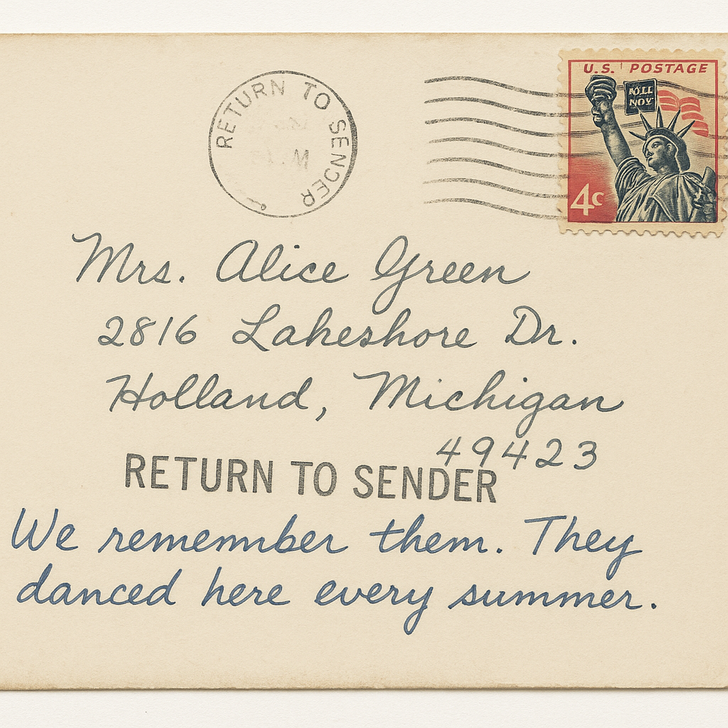 RETURN TO SENDER
U.S. POSTAGE
4c
Mrs. Alice Green
2816 Lakeshore Dr.
Holland, Michigan
49423
RETURN TO SENDER
We remember them. They
danced here every summer.